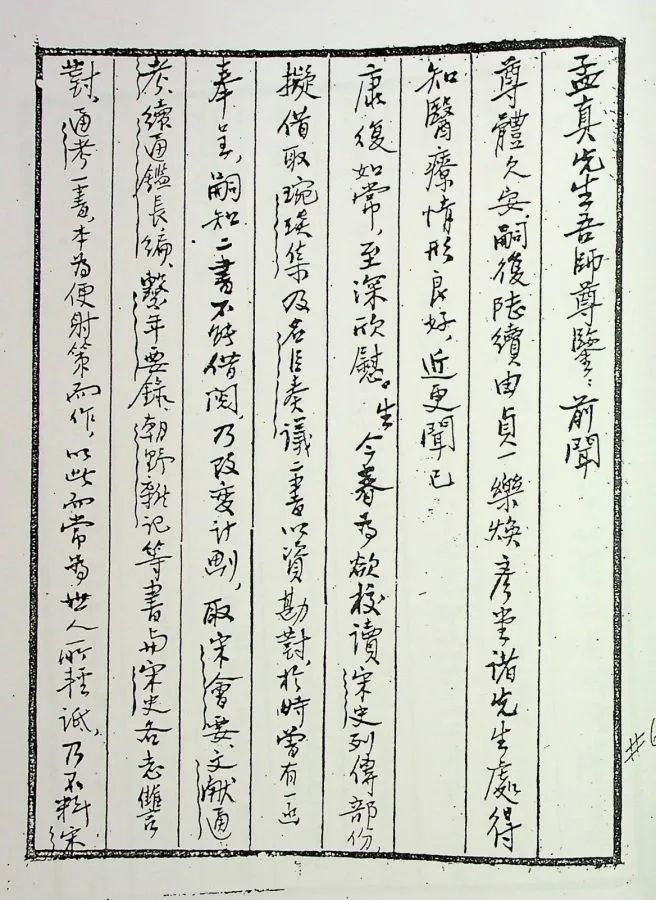 孟真先生吾師尊鑒：前聞
尊體欠安，嗣後陸續由貞一樂煥彥堂諸先生處得
知醫療情形良好，近更聞已
康復如常，至深欣慰。生今春為欲校讀宋史列傳部份，
擬借取琬琰集及名臣奏議二書以資勘對，於時曾有一函
奉呈，嗣知二書不能借閱，乃改變計劃，取宋會要、文獻通
考、續通鑑長編、繫年要錄、朝野雜記等書与宋史各志讎
對，通考一書，本為便射策而作，以此而常為世人所輕詆，乃不料宋
#6